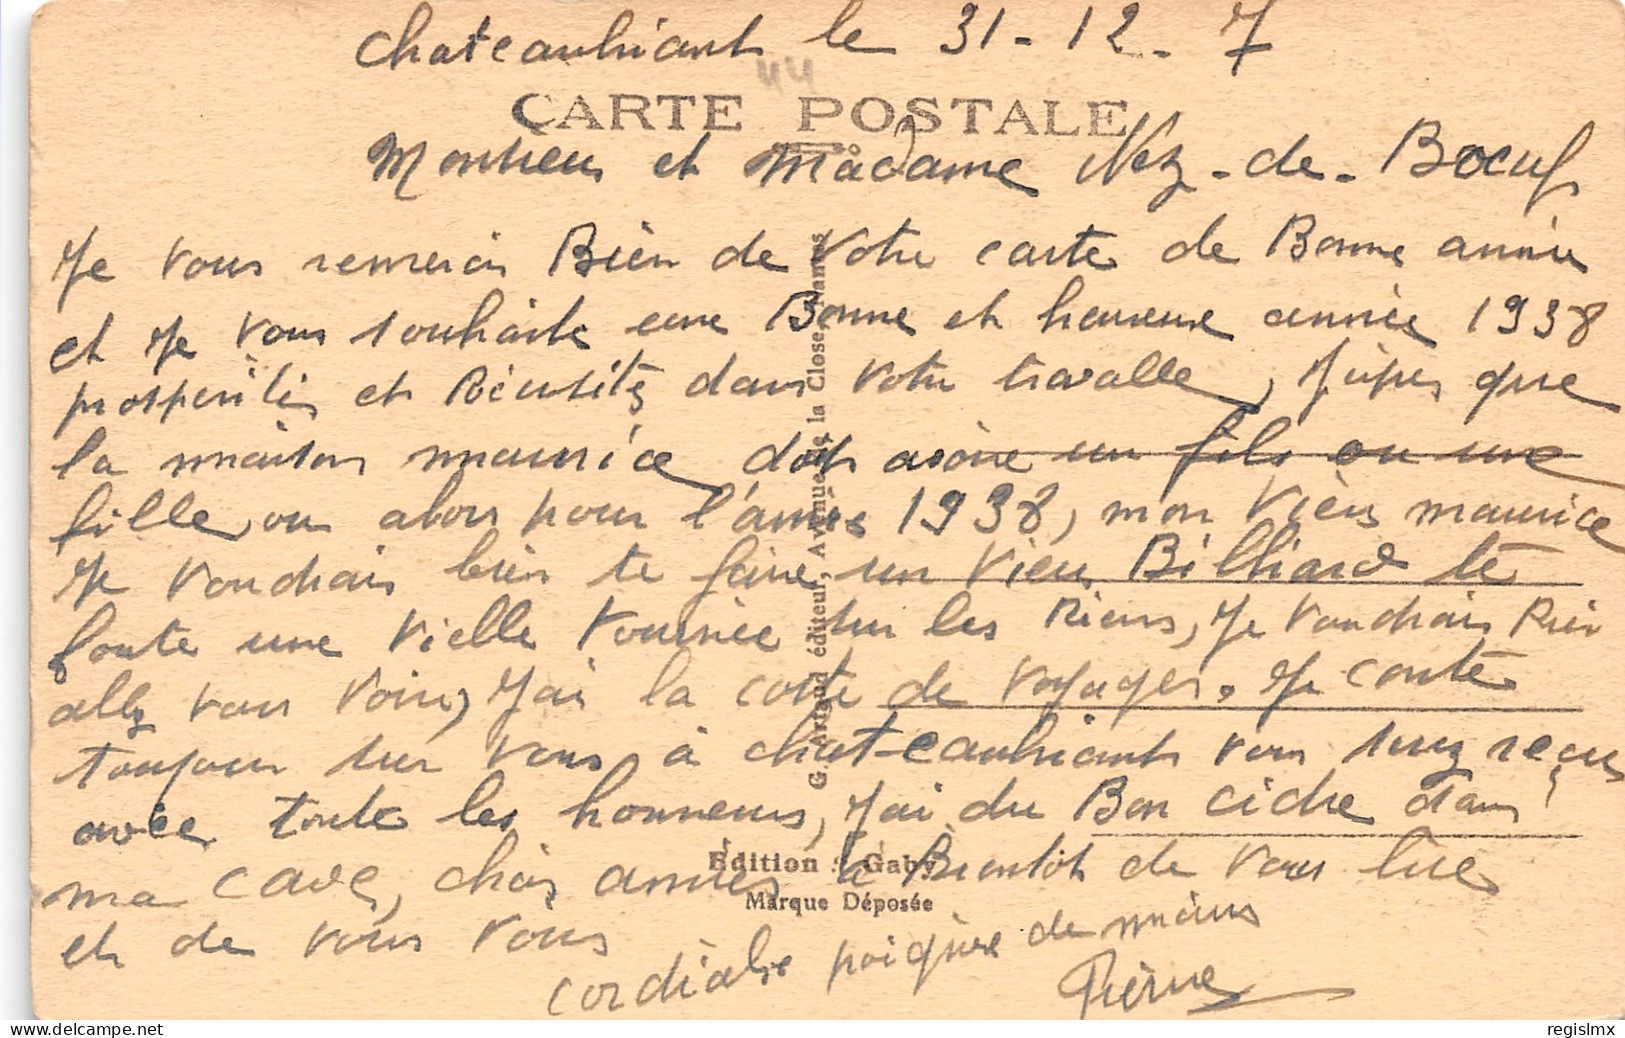 Chateaubriant le 31-12-7
44
CARTE POSTALE
Monsieur et Madame Nez-de-Boeuf
Je vous remercis Bièn de votre carte de Bonne année
et je vous souhaite une Bonne et heureuse année 1938
prosperités et Réeusite dans votre travalle, j'éspes que
la maison maurice doit avoire un fils ou une
fille, ou alors pour l'année 1938, mon vieus maurice
je voudrais bien te faire un vieus Billiard te
foute une vielle tournée sur les Riens, je voudrais Rien
allez vous voire, j'ai la cote de voyages. je conte
toujour sur vous à chateaubriant vous serez reçus
avèc toute les honneurs, j'ai du Bon cidre dans
ma cave, chèrs amies à Bientôt de vous lire
et de vous voirs
cordiale poignée de mains
Pièrre
G. Artaud éditeur, Avenue de la Close, Nantes
Édition Gaby
Marque Déposée
regislmx